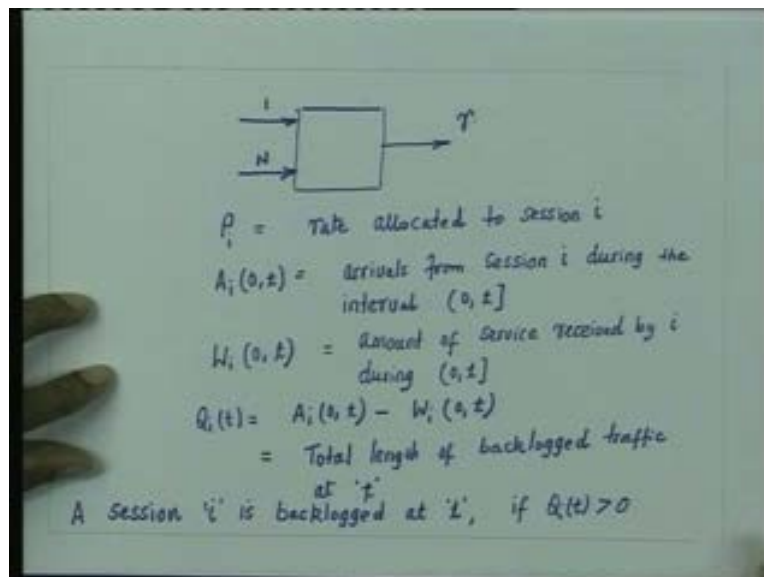 1
N
r
ρᵢ = rate allocated to session i
Aᵢ(0,t) = arrivals from session i during the
interval (0,t]
Wᵢ(0,t) = amount of service received by i
during (0,t]
Qᵢ(t) = Aᵢ(0,t) - Wᵢ(0,t)
= Total length of backlogged traffic
at 't'
A session 'i' is backlogged at 't', if Q(t) > 0